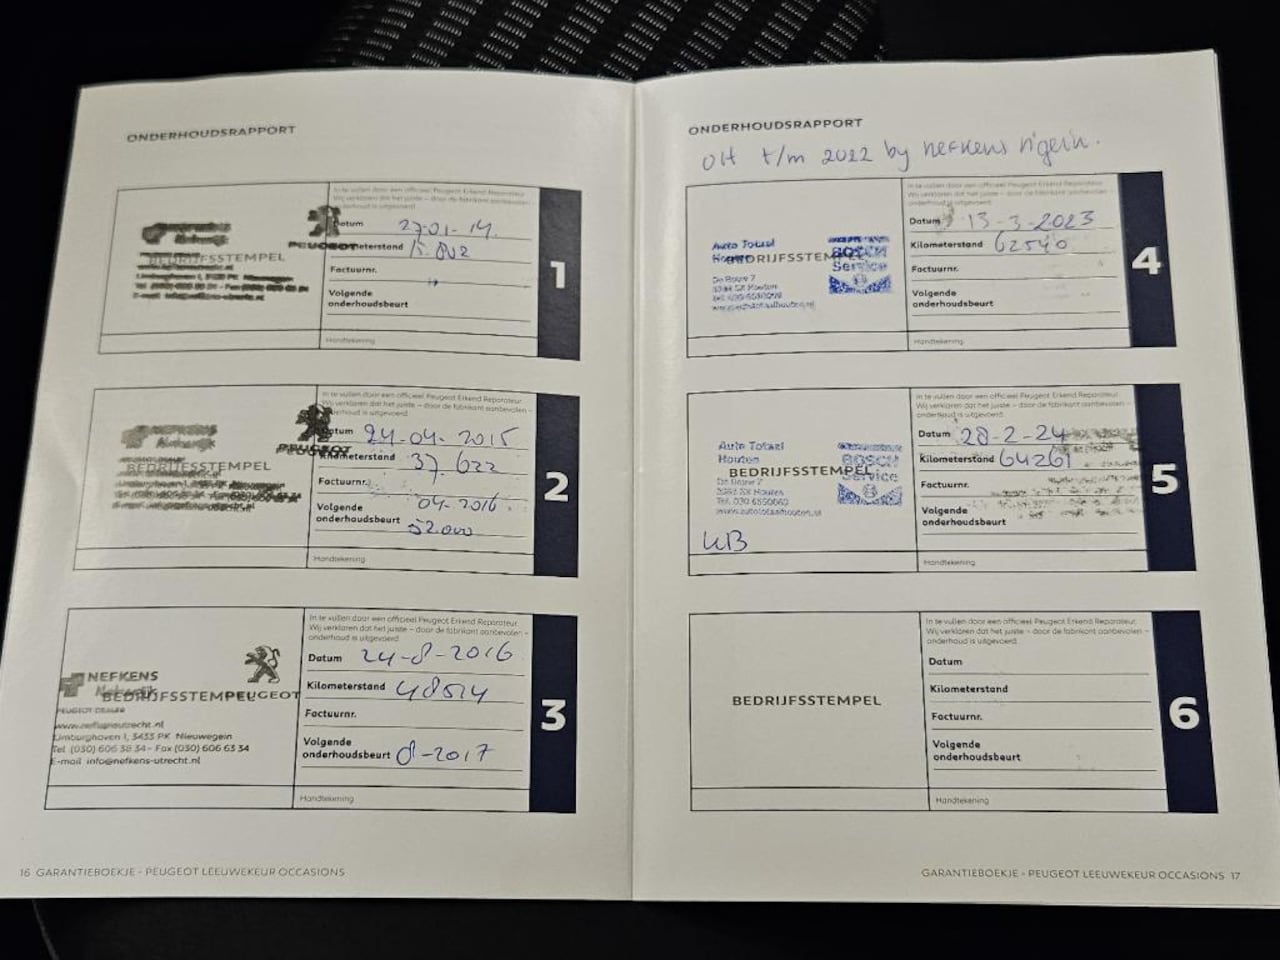 ONDERHOUDSRAPPORT
In te vullen door een officieel Peugeot Erkend Reparateur.
Wij verklaren dat het juiste – door de fabrikant aanbevolen –
onderhoud is uitgevoerd.
PEUGEOT
BEDRIJFSSTEMPEL
Datum 27-01-14.
Kilometerstand
Factuurnr.
Volgende
onderhoudsbeurt
Handtekening
1
In te vullen door een officieel Peugeot Erkend Reparateur.
Wij verklaren dat het juiste – door de fabrikant aanbevolen –
onderhoud is uitgevoerd.
PEUGEOT
BEDRIJFSSTEMPEL
Datum 24-04-2015
Kilometerstand 37.622
Factuurnr.
Volgende 04-2016
onderhoudsbeurt 52.000
Handtekening
2
In te vullen door een officieel Peugeot Erkend Reparateur.
Wij verklaren dat het juiste – door de fabrikant aanbevolen –
onderhoud is uitgevoerd.
NEFKENS
BEDRIJFSSTEMPEL
PEUGEOT
PEUGEOT DEALER
www.nefkensutrecht.nl
Limburghaven 1, 3433 PK Nieuwegein
Tel. (030) 606 38 34 - Fax (030) 606 63 34
E-mail info@nefkens-utrecht.nl
Datum 24-8-2016
Kilometerstand 48514
Factuurnr.
Volgende
onderhoudsbeurt 8-2017
Handtekening
3
16 GARANTIEBOEKJE - PEUGEOT LEEUWEKEUR OCCASIONS
ONDERHOUDSRAPPORT
OH t/m 2022 by nefkens n'gein.
In te vullen door een officieel Peugeot Erkend Reparateur.
Wij verklaren dat het juiste – door de fabrikant aanbevolen –
onderhoud is uitgevoerd.
Auto Totaal
Houten
BEDRIJFSSTEMPEL
BOSCH
Service
De Bouw 7
Datum 13-3-2023
Kilometerstand 62540
Factuurnr.
Volgende
onderhoudsbeurt
Handtekening
4
In te vullen door een officieel Peugeot Erkend Reparateur.
Wij verklaren dat het juiste – door de fabrikant aanbevolen –
onderhoud is uitgevoerd.
Auto Totaal
Houten
BEDRIJFSSTEMPEL
BOSCH
Service
De Bouw 7
www.autototaalhouten.nl
Datum 28-2-24
Kilometerstand 64261
Factuurnr.
Volgende
onderhoudsbeurt
Handtekening
5
In te vullen door een officieel Peugeot Erkend Reparateur.
Wij verklaren dat het juiste – door de fabrikant aanbevolen –
onderhoud is uitgevoerd.
BEDRIJFSSTEMPEL
Datum
Kilometerstand
Factuurnr.
Volgende
onderhoudsbeurt
Handtekening
6
GARANTIEBOEKJE - PEUGEOT LEEUWEKEUR OCCASIONS 17